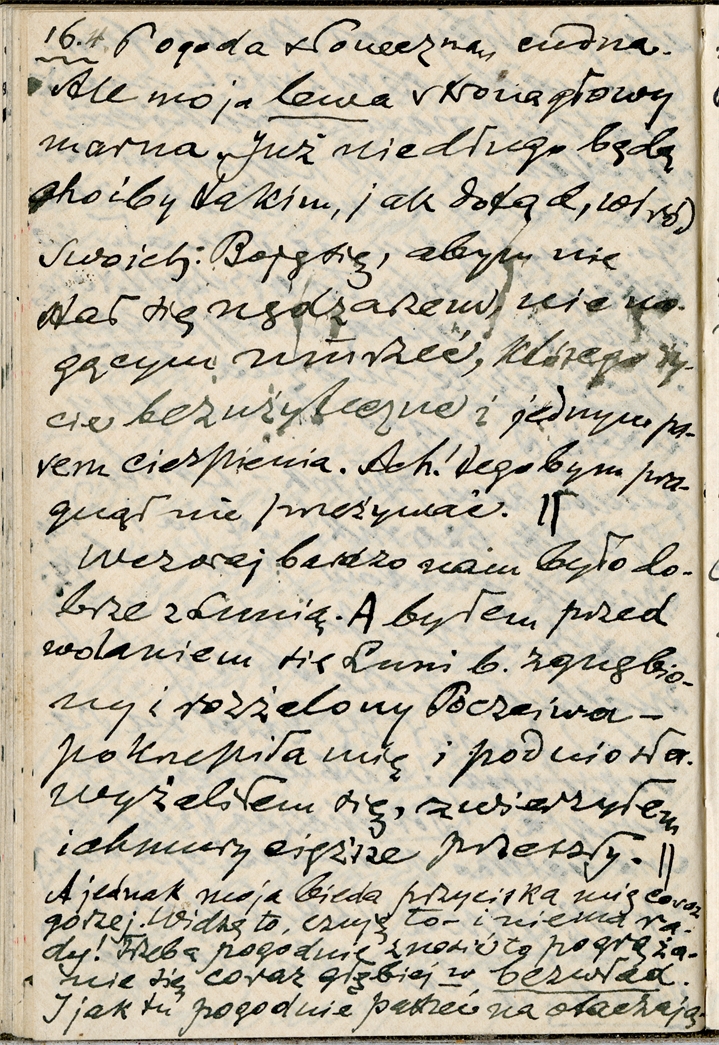 16.4 Pogoda słoneczna, cudna.
Ale moja lewa strona głowy
marna. Już niedługo będę
choćby takim, jak dotąd, wśród
swoich. Boję się, abym nie
stał się nędzarzem, nie mo-
gącym umrzeć, którego ży-
cie bezużyteczne i jednym pa-
rem cierpienia. Ach! tego bym pra-
gnął nie przeżywać. ||
Wczoraj bardzo nam było do-
brze z Lunią. A byłem przed
wstaniem się Luni b. zgnębio-
ny i rozżalony Poczciwa –
pokrzepiła mię i podniosła.
Wyżaliłem się, zwierzyłem
i chmury cięższe przeszły. ||
A jednak moja bieda przyciska mię coraz
gorzej. Widzę to, czuję to – i niema ra-
dy! Trzeba pogodnie znosić to pogrąża-
nie się coraz głębiej w bezwład.
I jak tu pogodnie patrzeć na otaczają